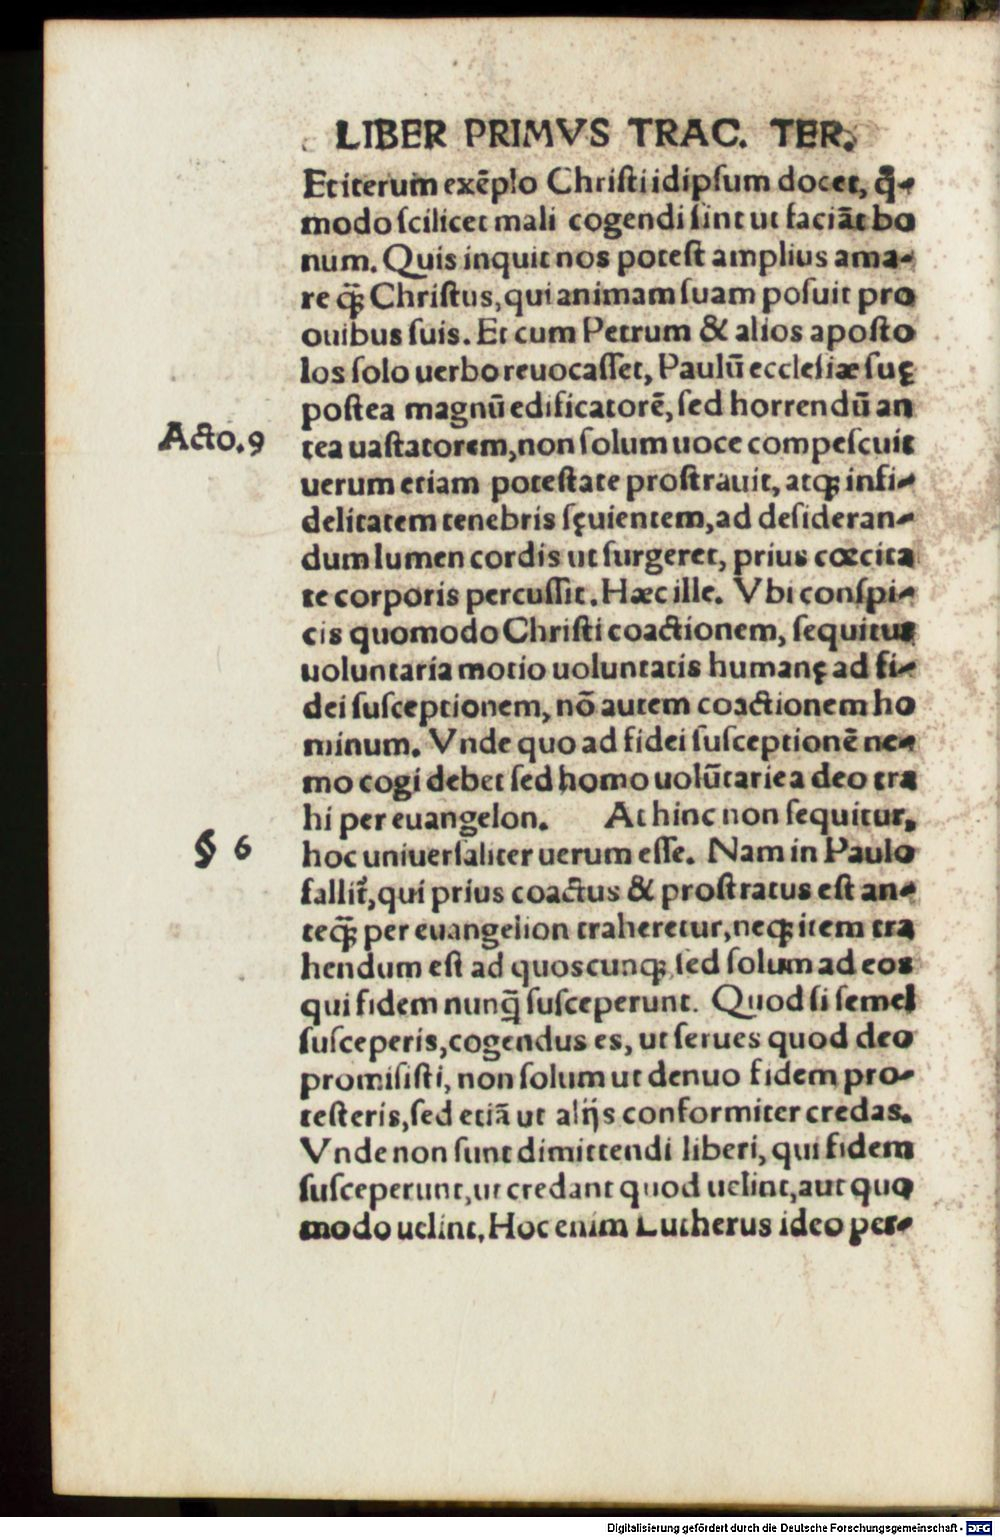 LIBER PRIMVS TRAC. TER.
Et iterum exẽplo Chriſti idipſum docet, q̃-
modo ſcilicet mali cogendi ſint ut faciãt bo
num. Quis inquit nos poteſt amplius ama-
re q̃ꝫ Chriſtus, qui animam ſuam poſuit pro
ouibus ſuis. Et cum Petrum & alios apoſto
los ſolo uerbo reuocaſſet, Paulũ eccleſiæ ſuę
poſtea magnũ edificatorẽ, ſed horrendũ an
Acto. 9
tea uaſtatorem, non ſolum uoce compeſcuit
uerum etiam poteſtate proſtrauit, atqꝫ infi-
delitatem tenebris ſęuientem, ad deſideran-
dum lumen cordis ut ſurgeret, prius cœcita
te corporis percuſſit. Hæc ille. Vbi conſpi-
cis quomodo Chriſti coactionem, ſequitur
uoluntaria motio uoluntatis humanę ad fi-
dei ſuſceptionem, nõ autem coactionem ho
minum. Vnde quo ad fidei ſuſceptionẽ ne-
mo cogi debet ſed homo uolũtarie a deo tra
hi per euangelon. At hinc non ſequitur,
§ 6
hoc uniuerſaliter uerum eſſe. Nam in Paulo
fallit᷑, qui prius coactus & proſtratus eſt an-
teq̃ꝫ per euangelion traheretur, neqꝫ item tra
hendum eſt ad quoscunqꝫ ſed ſolum ad eos
qui fidem nunq̃ ſuſceperunt. Quod ſi ſemel
ſuſceperis, cogendus es, ut ſerues quod deo
promiſiſti, non ſolum ut denuo fidem pro-
teſteris, ſed etiã ut alijs conformiter credas.
Vnde non ſunt dimittendi liberi, qui fidem
ſuſceperunt, ut credant quod uelint, aut quo
modo uelint. Hoc enim Lutherus ideo per-
Digitalisierung gefördert durch die Deutsche Forschungsgemeinschaft - DFG